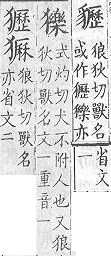 狼狄切獸名
或作
亦省文一
式灼切犬不附人也又狼
狄切獸名文一重音一
狼狄切獸名
亦省文二